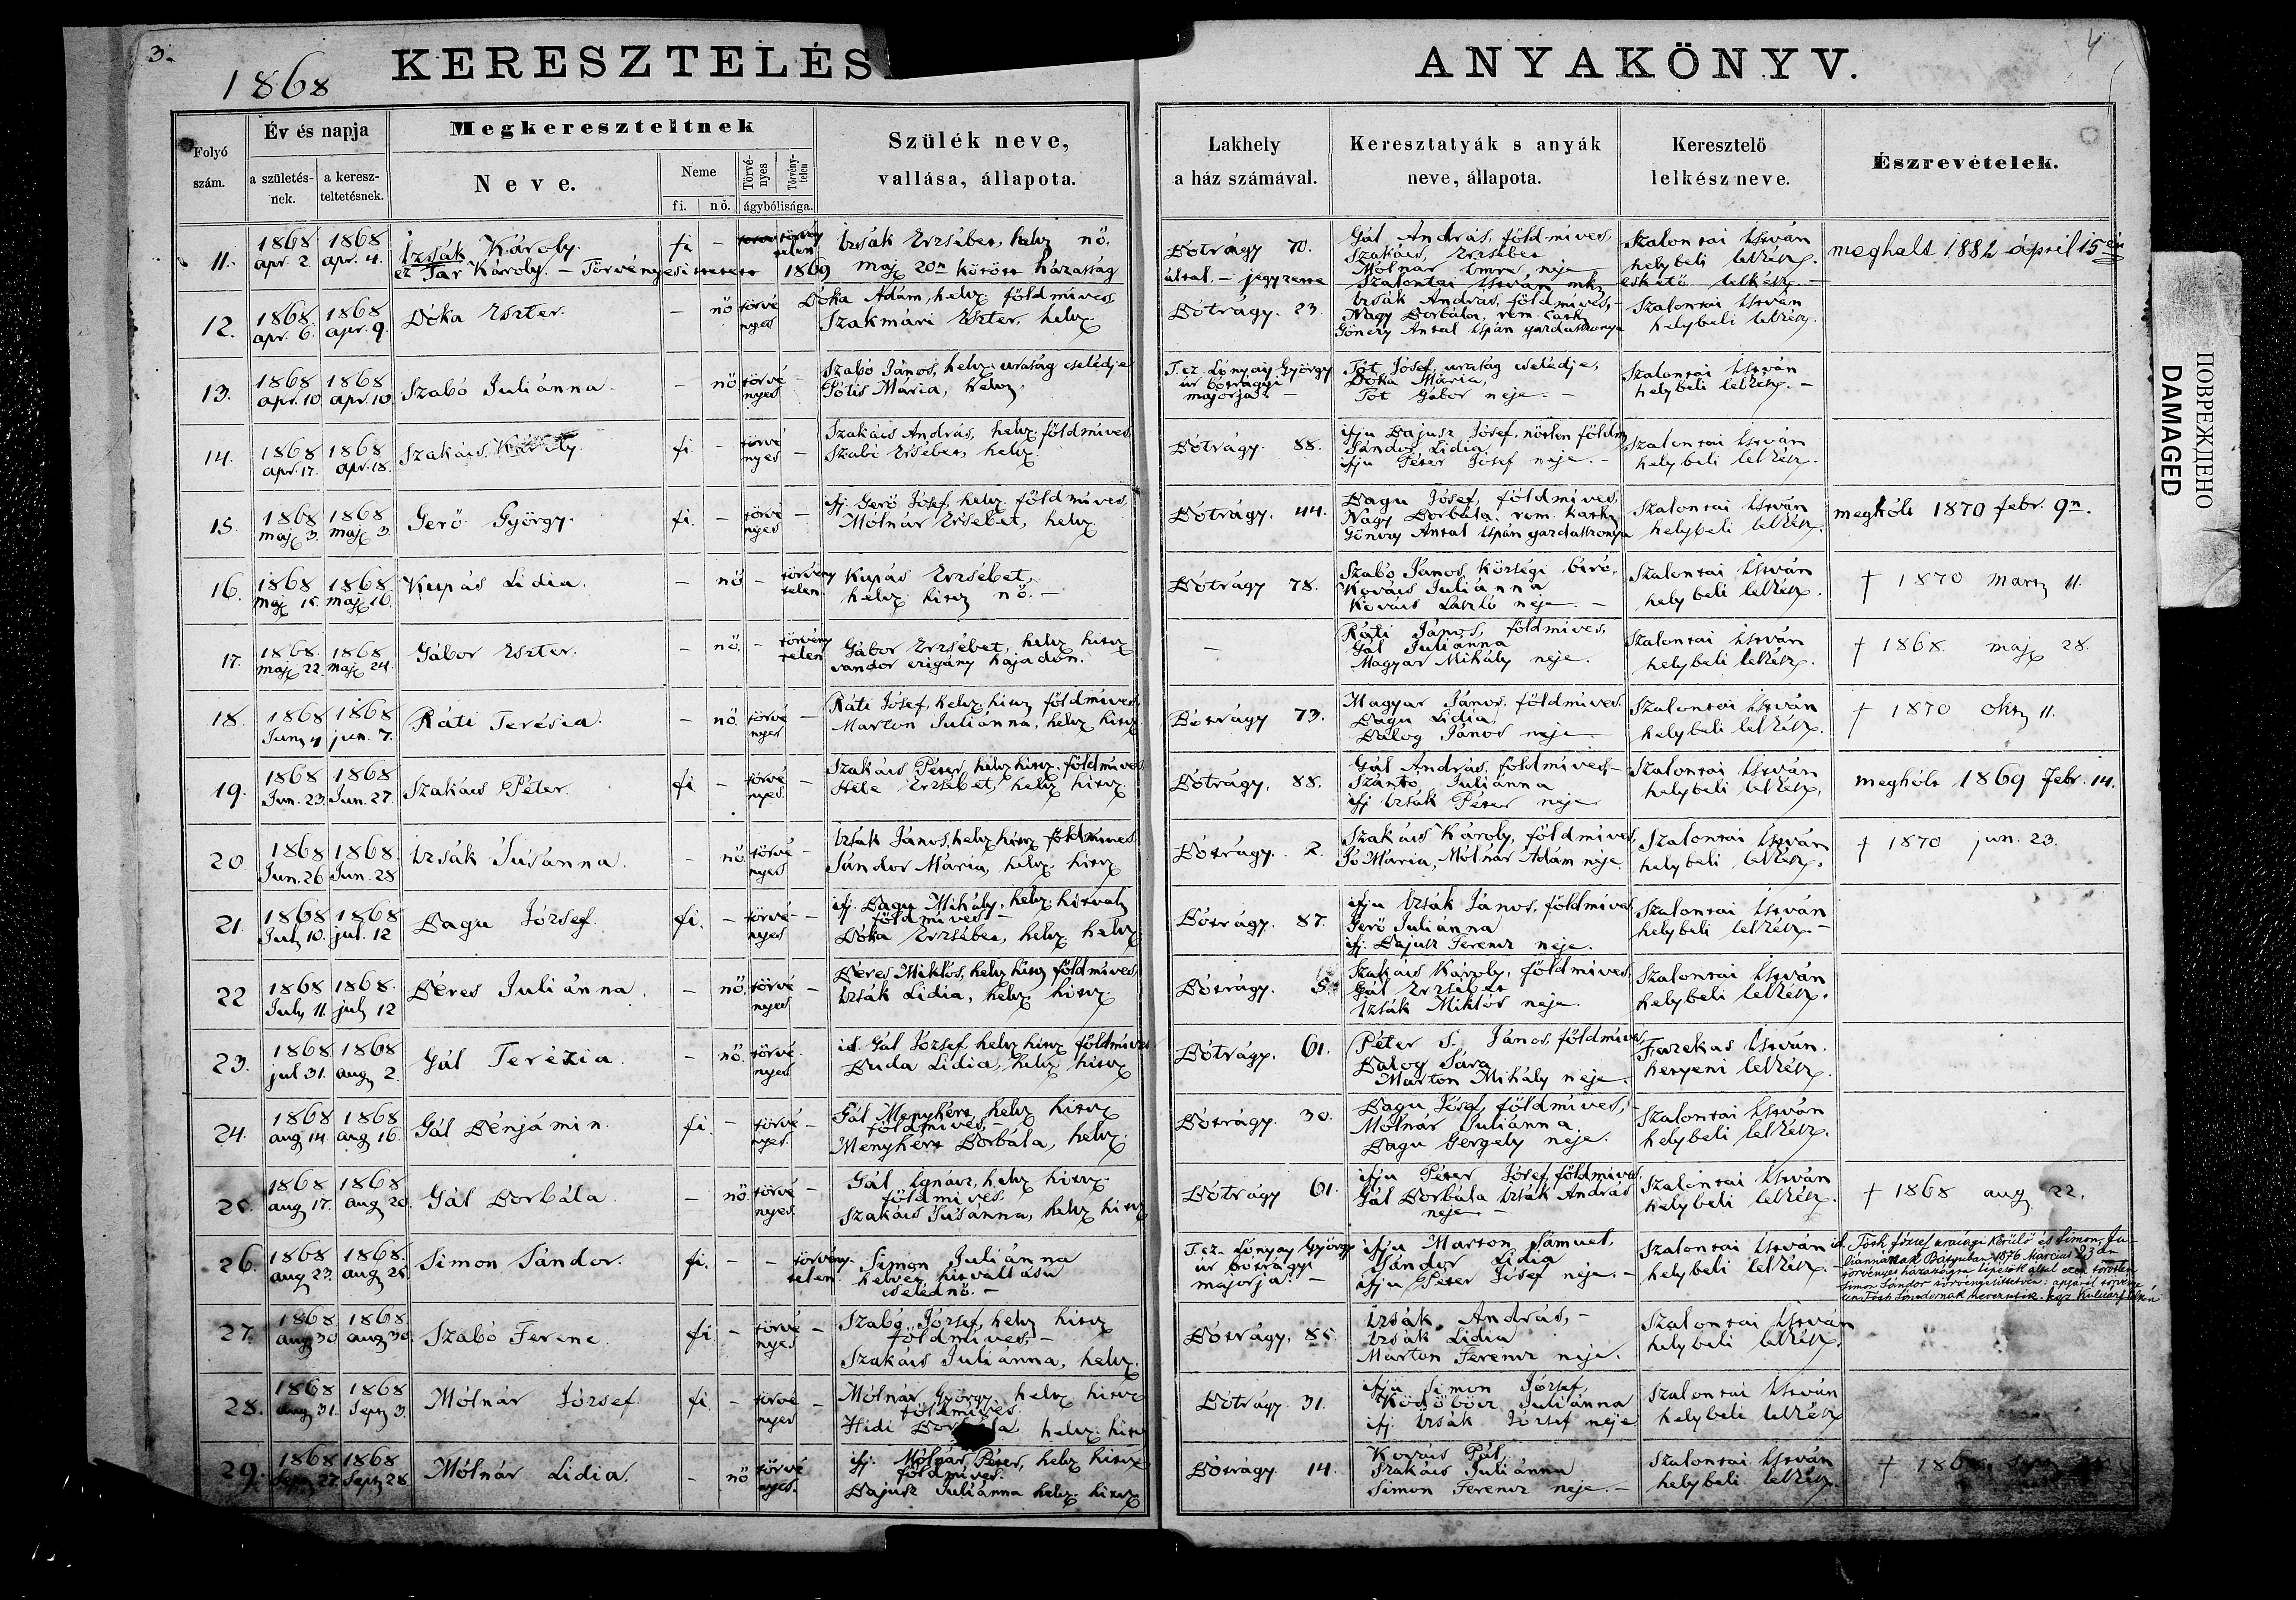 3.
4
1868
KERESZTELÉS
ANYAKÖNYV.
Folyó szám.
Év és napja
a születésnek.
a kereszteltetésnek.
Megkereszteltnek
Neve.
Neme
fi.
nő.
Törvényes
Törvénytelen
ágybólisága.
Szülék neve,
vallása, állapota.
Lakhely
a ház számával.
Keresztatyák s anyák
neve, állapota.
Keresztelő
lelkész neve.
Észrevételek.
11. 1868 apr. 2. 1868 apr. 4. Izsák Károly. fi - törvénytelen Izsák Erzsébet, helv nő. Bótrágy 70. Gál András, földmives, Szakács Erzsébet Molnár Imre neje Szalontai István helybeli lelkész. meghalt 1882 április 15én
ez Tar Károly. - Törvényesittetett 1869 maj 20n kötött házasság által. - jegyzette Szalontai István mk. eskető lelkész. -
12. 1868 apr. 6. 1868 apr. 9 Bóka Eszter. - nő törvényes Bóka Ádám, helv földmives Szakmári Eszter, helv Bótrágy. 23. Izsák András, földmives, Nagy Borbála, rom. kath Gönczy Antal Ispán gazdasszonya Szalontai István helybeli lelkész.
13. 1868 apr. 10 1868 apr. 10 Szabó Juliánna. - nő törvényes - Szabó János, helv. uraság cselédje Mária, helv T. cz. Lónyay György úr bótrágyi majorja. - Tót Jósef, uraság cselédje, Bóka Mária, Tót Gábor neje. - Szalontai István helybeli lelkész. -
14. 1868 apr. 17. 1868 apr. 18. Szakács Károly. fi. - törvényes - Szakács András, helv. földmives, Szabó Ersébet, helv. Bótrágy. 88. ifju Bajusz Jósef, nőtlen földm Sándor Lidia, ifju Péter Jósef neje. - Szalontai István helybeli lelkész.
15. 1868 maj 3. 1868 maj 3. Gerő György. fi. - törvényes - ifj. Gerő Jósef, helv. földmives, Molnár Ersébet, helv Bótrágy. 44. Bagu Jósef, földmives, Nagy Borbála, rom. kath Gönczy Antal Ispán gazdasszonya Szalontai István helybeli lelkész. meghólt 1870 febr. 9n.
16. 1868 maj 15. 1868 maj 16. Kupás Lidia. - nő - törvénytelen Kupás Erzsébet, helv hitv nő. - Bótrágy 78. Szabó János, községi biró, Kovács Juliánna Kovács László neje. - Szalontai István helybeli lelkész. † 1870 mart 11.
17. 1868. maj 22. 1868 maj 24. Gábor Eszter. - nő. - törvénytelen Gábor Erzsébet, helv hitv vándor czigány hajadon. - Ráti János, földmives, Gál Juliánna Magyar Mihály neje. Szalontai István helybeli lelkész. † 1868. maj 28.
18. 1868 Jun 4 1868 jun. 7. Ráti Terésia. - nő. törvényes - Ráti Jósef, helv hitv földmives, Marton Juliánna, helv hitv Bótrágy 73. Magyar János, földmives. Bagu Lidia, Balog János neje Szalontai István helybeli lelkész. † 1870 Okt 11.
19. 1868 Jun. 23. 1868 Jun. 27. Szakács Péter. fi - törvényes - Szakács Péter, helv hitv. földmives Erzsébet, helv hitv. Bótrágy, 88. Gál András, földmives, - Szántó Juliánna ifj Izsák Péter neje Szalontai István helybeli lelkész. meghólt 1869 febr. 14.
20 1868 Jun. 26 1868. Jun. 28 Izsák Súsánna. - nő. törvényes - Izsák János, helv hitv földmives. Sándor Mária, helv. hitv Bótrágy. 2. Szakács Károly, földmives, Jó Mária, Mólnár Ádám neje. Szalontai István helybeli lelkész. † 1870 jun. 23.
21. 1868 July 10. 1868 jul. 12 Bagu József. fi. - törvényes - ifj. Bagu Mihály, helv. hitvaly földmives - Bóka Erzsébet, helv helv Bótrágy. 87. ifju Izsák János, földmives, Gerő Juliánna ifj. Bajusz Ferencz neje. Szalontai István helybeli lelkész. -
22 1868 July 11. 1868. july 12 Béres Juliánna. - nő. törvényes - Béres Miklós, helv hitv földmives, Izsák Lidia, helv hitv. Bótrágy. 5. Szakács Károly, földmives, Gál Erzsébet Izsák Miklós neje. Szalontai István helybeli lelkész.
23. 1868 jul 31. 1868 aug 2. Gál Terézia. - nő. törvényes id. Gál József, helv hitv földmives Buda Lidia, helv hitv Bótrágy. 61. Péter S. János, földmives, Balog Sára Marton Mihály neje. Fazekas István. hetyeni lelkész.
24. 1868 aug 14. 1868 aug 16. Gál Bénjámin. fi. - törvényes - Gál Menyhért, helv hitv földmives, - Menyhért Borbála, helv Bótrágy. 30. Bagu Jósef, földmives, - Mólnár Juliánna. Bagu Gergely neje. Szalontai István helybeli lelkész.
25. 1868 aug 17. 1868 aug 20. Gál Borbála. - nő. törvényes - Gál Ignácz, helv hitv. földmives. Szakács Súsánna, helv hitv Bótrágy 61. ifju Péter Jósef, földmives. Gál Borbála Izsák András neje. - Szalontai István helybeli lelkész. † 1868 aug 22.
26. 1868 aug 23. 1868. aug 25. Simon Sándor. fi. - - törvénytelen. Simon Juliánna helvét hitvallásu cselédnő. - T. cz. Lónyay György úr bótrágyi majorja. - ifju Marton Sámuel, Sándor Lidia ifju Péter Jósef neje. - Szalontai István helybeli lelkész. - id. Tóth József urasági kerülő és Simon Juliánnának Bátyuban 1876 Március 23án törvényes házasságra lépésük által ezen törvtlen Simon Sándor törvényesittetvén: apjáról törvényesen Tóth Sándornak neveztetik.
27. 1868 aug 30 1868 aug 30. Szabó Ferenc. fi. - törvényes - Szabó József, helv hitv földmives, - Szakács Juliánna, helv. Bótrágy, 85. Izsák András, - Izsák Lidia Marton Ferencz neje. Szalontai István helybeli lelkész.
28. 1868 aug 31. 1868 Sept 3. Mólnár József. fi - törvényes - Mólnár György, helv hitv földmives. Hidi helv. hitv Bótrágy. 31. ifju Simon József, Ködöböcz Juliánna ifj. Izsák József neje Szalontai István helybeli lelkész
29. 1868 Sept 27. 1868 Sept 28. Mólnár Lidia. - nő törvényes. ifj. Mólnár Péter, helv hitv földmives. Bajusz Juliánna helv. hitv Bótrágy. 14. Kovács Pál, Szakács Juliánna Simon Ferencz neje. - Szalontai István helybeli lelkész. †
ПОВРЕЖДЕНО
DAMAGED